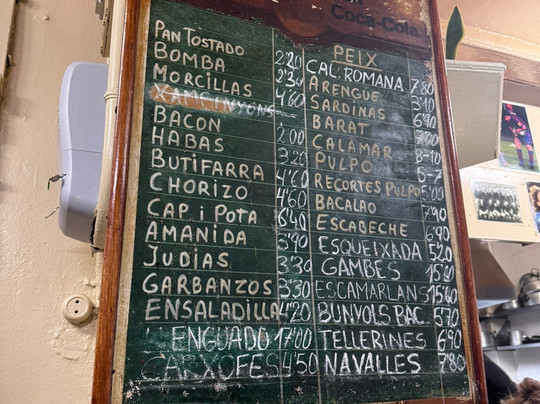 Coca-Cola
PAN TOSTADO
BOMBA 2'20
MORCILLAS 2'30
XAMPINYONS 4'60
BACON 2'00
HABAS 3'20
BUTIFARRA 4'60
CHORIZO 4'60
CAP i POTA 6'40
AMANIDA 3'90
JUDIAS 3'30
GARBANZOS 3'30
ENSALADILLA 4'20
LENGUADO 17'00
CARXOFES 4'50
PEIX
CAL. ROMANA 7'80
ARENGUE 3'10
SARDINAS 6'90
BARAT
CALAMAR 8-10
PULPO 5-7
RECORTES PULPO 5'00
BACALAO 7'90
ESCABECHE 6'90
ESQUEIXADA 5'20
GAMBES
ESCAMARLANS 15'60
BUNYOLS BAC. 5'70
TELLERINES 6'90
NAVALLES 7'80